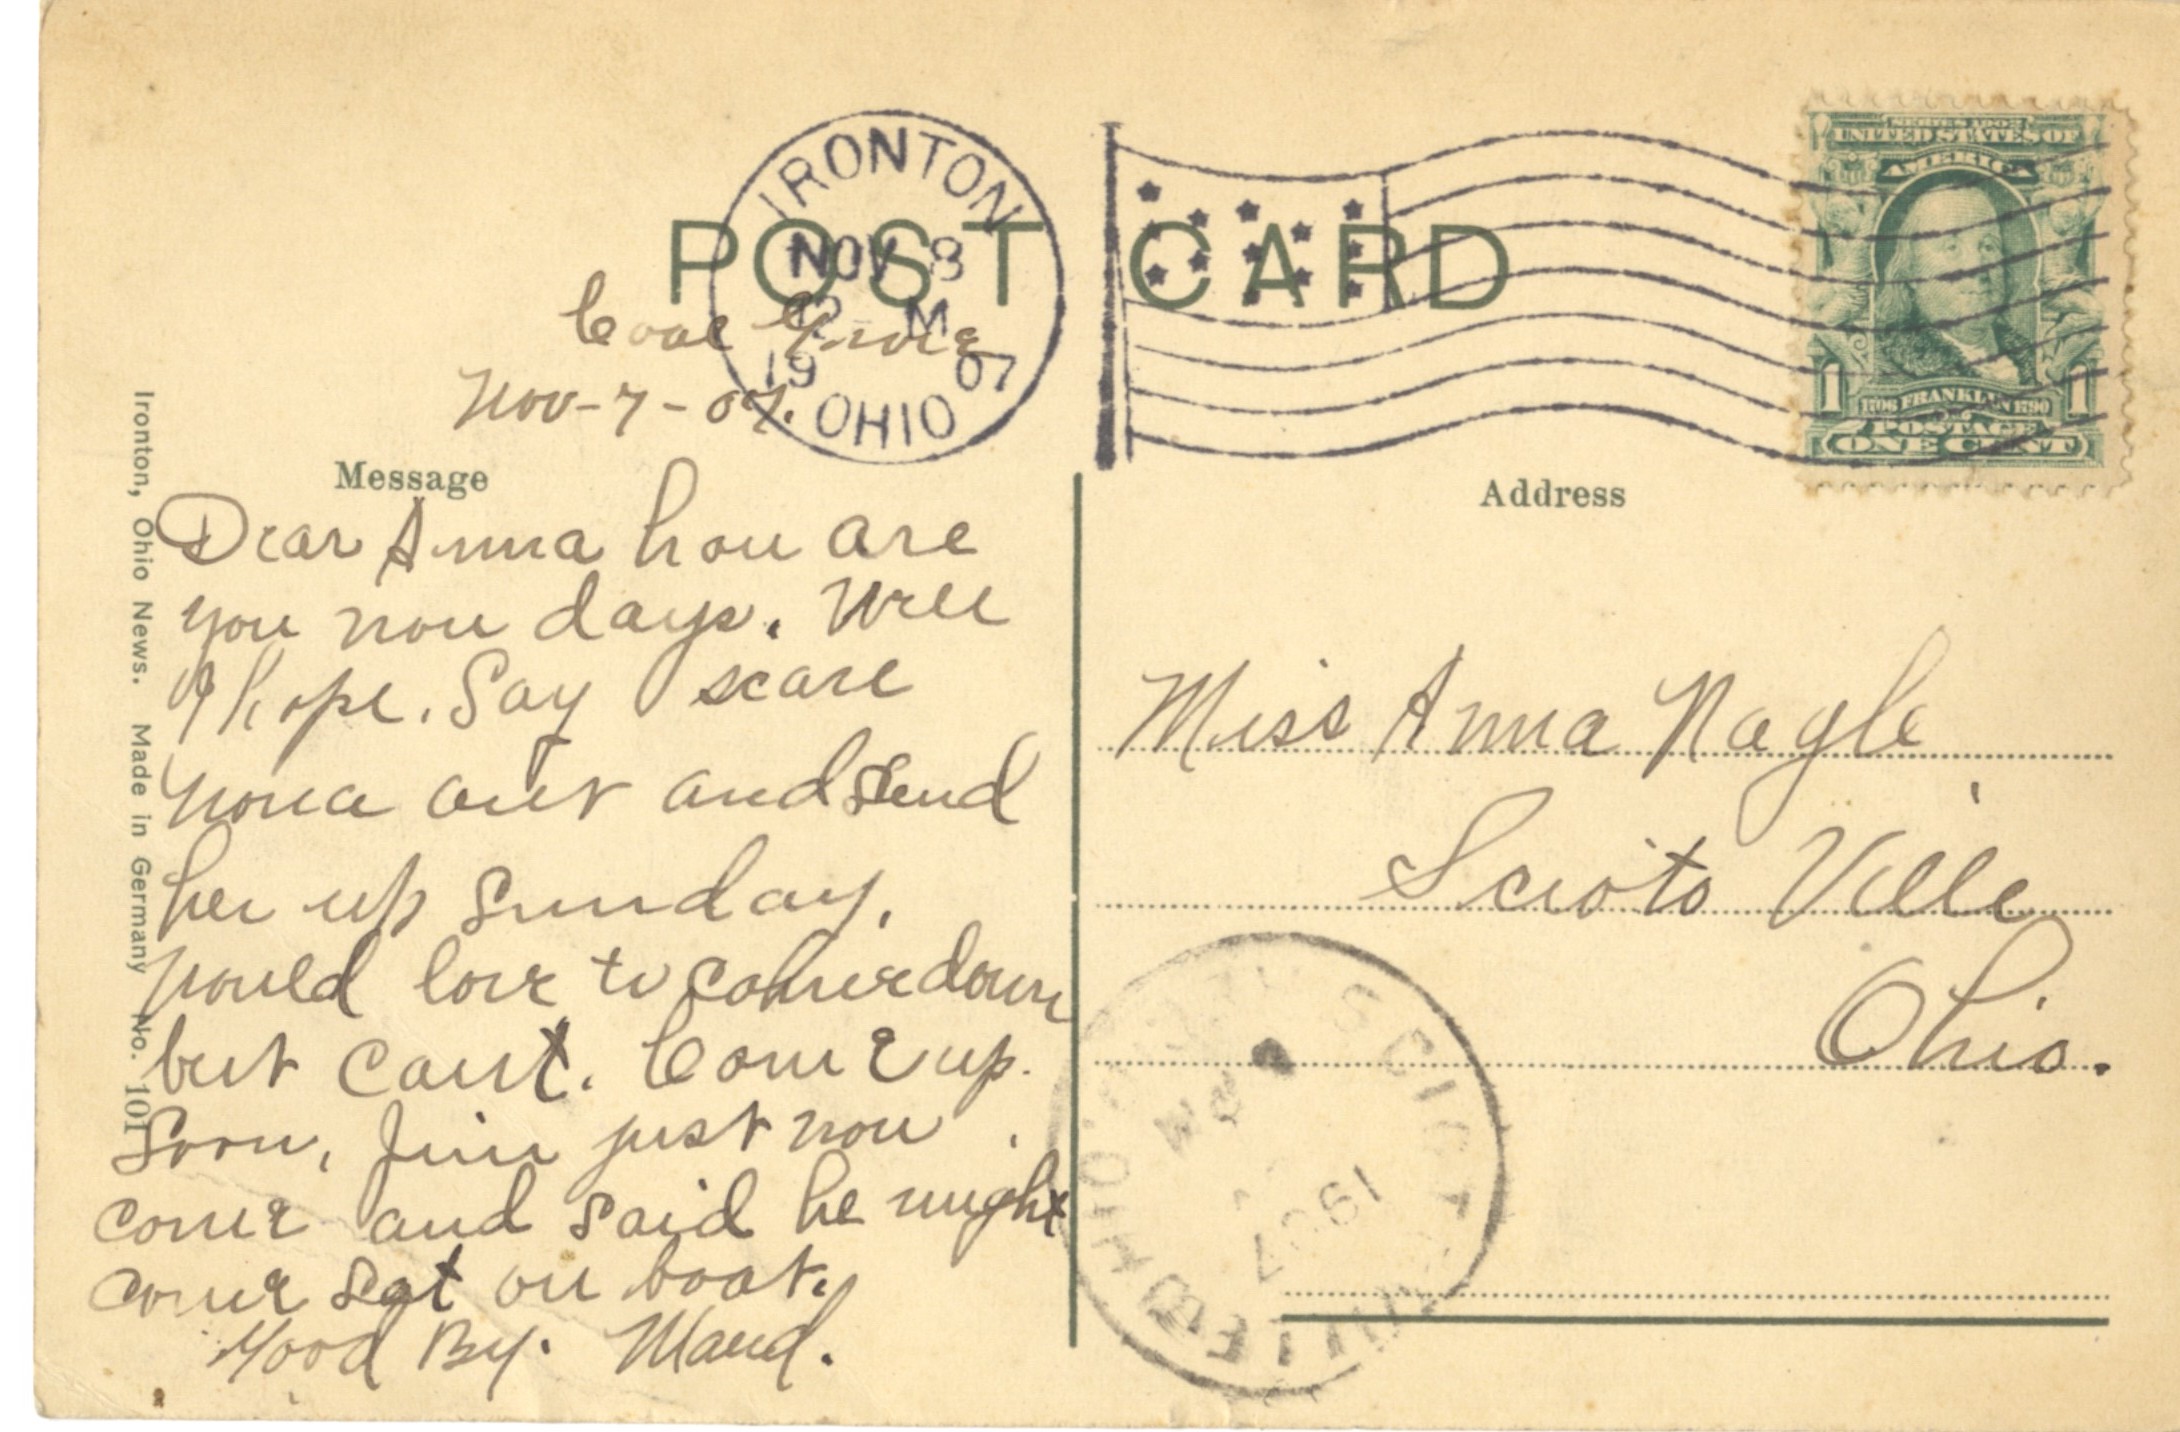 POST CARD
IRONTON
NOV 8
12 M
1907
OHIO
SERIES 1902
UNITED STATES OF
AMERICA
1706 FRANKLIN 1790
1 1
POSTAGE
ONE CENT
Coal Grove
Nov-7-07.
Message
Dear Anna how are
you now days. Well
I hope. Say scare
Nona out and send
her up Sunday.
Would love to come down
but cant. Come up.
Soon, Jim just now
come and said he might
come Sat on boat.
Good By. Maud.
Ironton, Ohio News. Made in Germany No. 101
Address
Miss Anna Nagle
Scioto Ville
Ohio.
SCIOTOVILLE
OHIO
1907